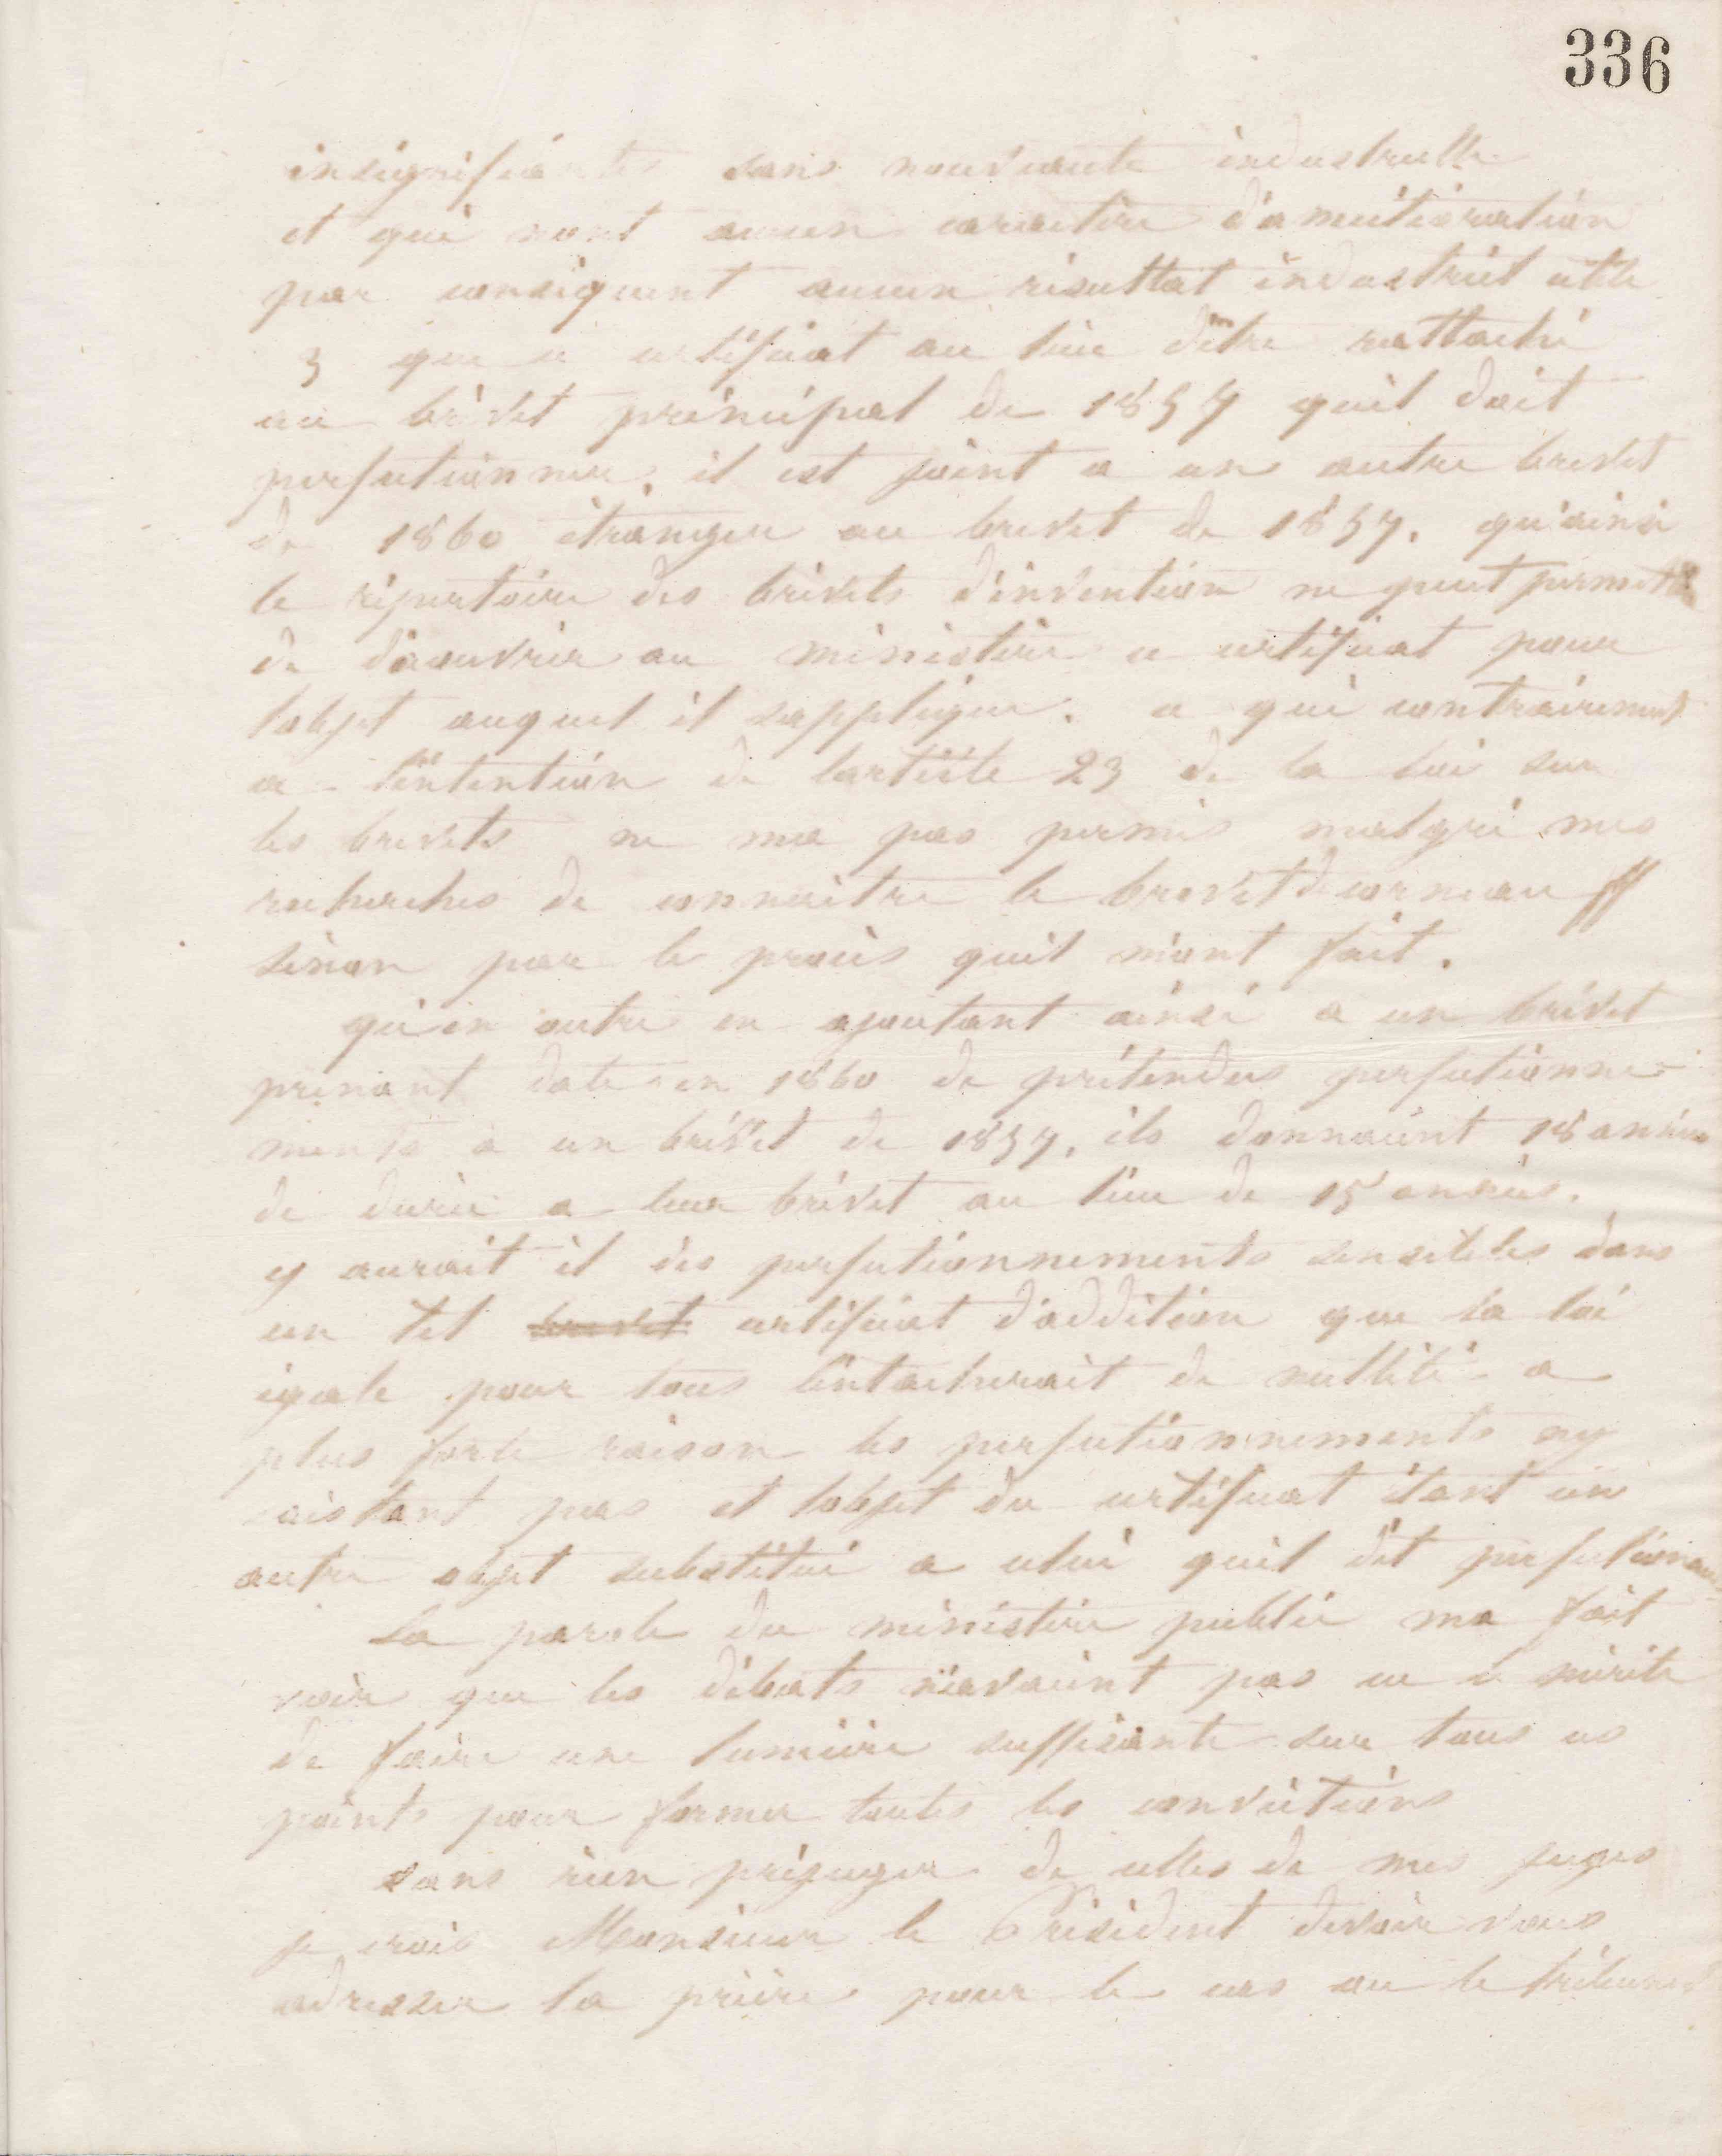 336
insignifiantes sans nouveauté industrielle
et qui nont aucun caractère d'amélioration
par conséquent aucun résultat industriel utile
3 que ce certificat au lieu d'être rattaché
au brevet principal de 1857 quil doit
perfectionner. il est joint a un autre brevet
de 1860 étranger au brevet de 1857. qu'ainsi
le répertoire des brevets d'invention ne peut permettre
de découvrir au ministère ce certificat pour
lobjet auquel il sapplique. ce qui contrairement
a l'intention de larticle 23 de la loi sur
les brevets ne ma pas permis malgré mes
recherches de connaître le brevet de corneau ff
sinon par le procès quil m'ont fait.
qu'en outre en ajoutant ainsi a un brevet
prenant date en 1860 de prétendus perfectionne-
ments à un brevet de 1857, ils donnaient 18 années
de durée a leur brevet au lieu de 15 années.
y aurait il des perfectionnements sensibles dans
un tel brevet certificat d'addition que la loi
égale pour tous l'entacherait de nullité a
plus forte raison les perfectionnements ny
existant pas et lobjet du certificat étant un
autre objet substitué a celui quil dit perfectionner
La parole du ministère public ma fait
voir que les débats n'avaient pas eu le mérite
de faire une lumière suffisante sur tous ces
points pour former toutes les convictions
sans rien préjuger de celles de mes juges
je crois Monsieur le Président devoir vous
adresser la prière pour le cas ou le tribunal